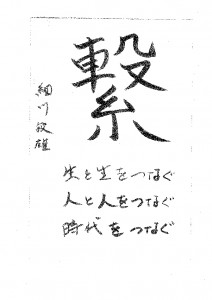 繋
生と生をつなぐ
人と人をつなぐ
時代をつなぐ
細川俊雄